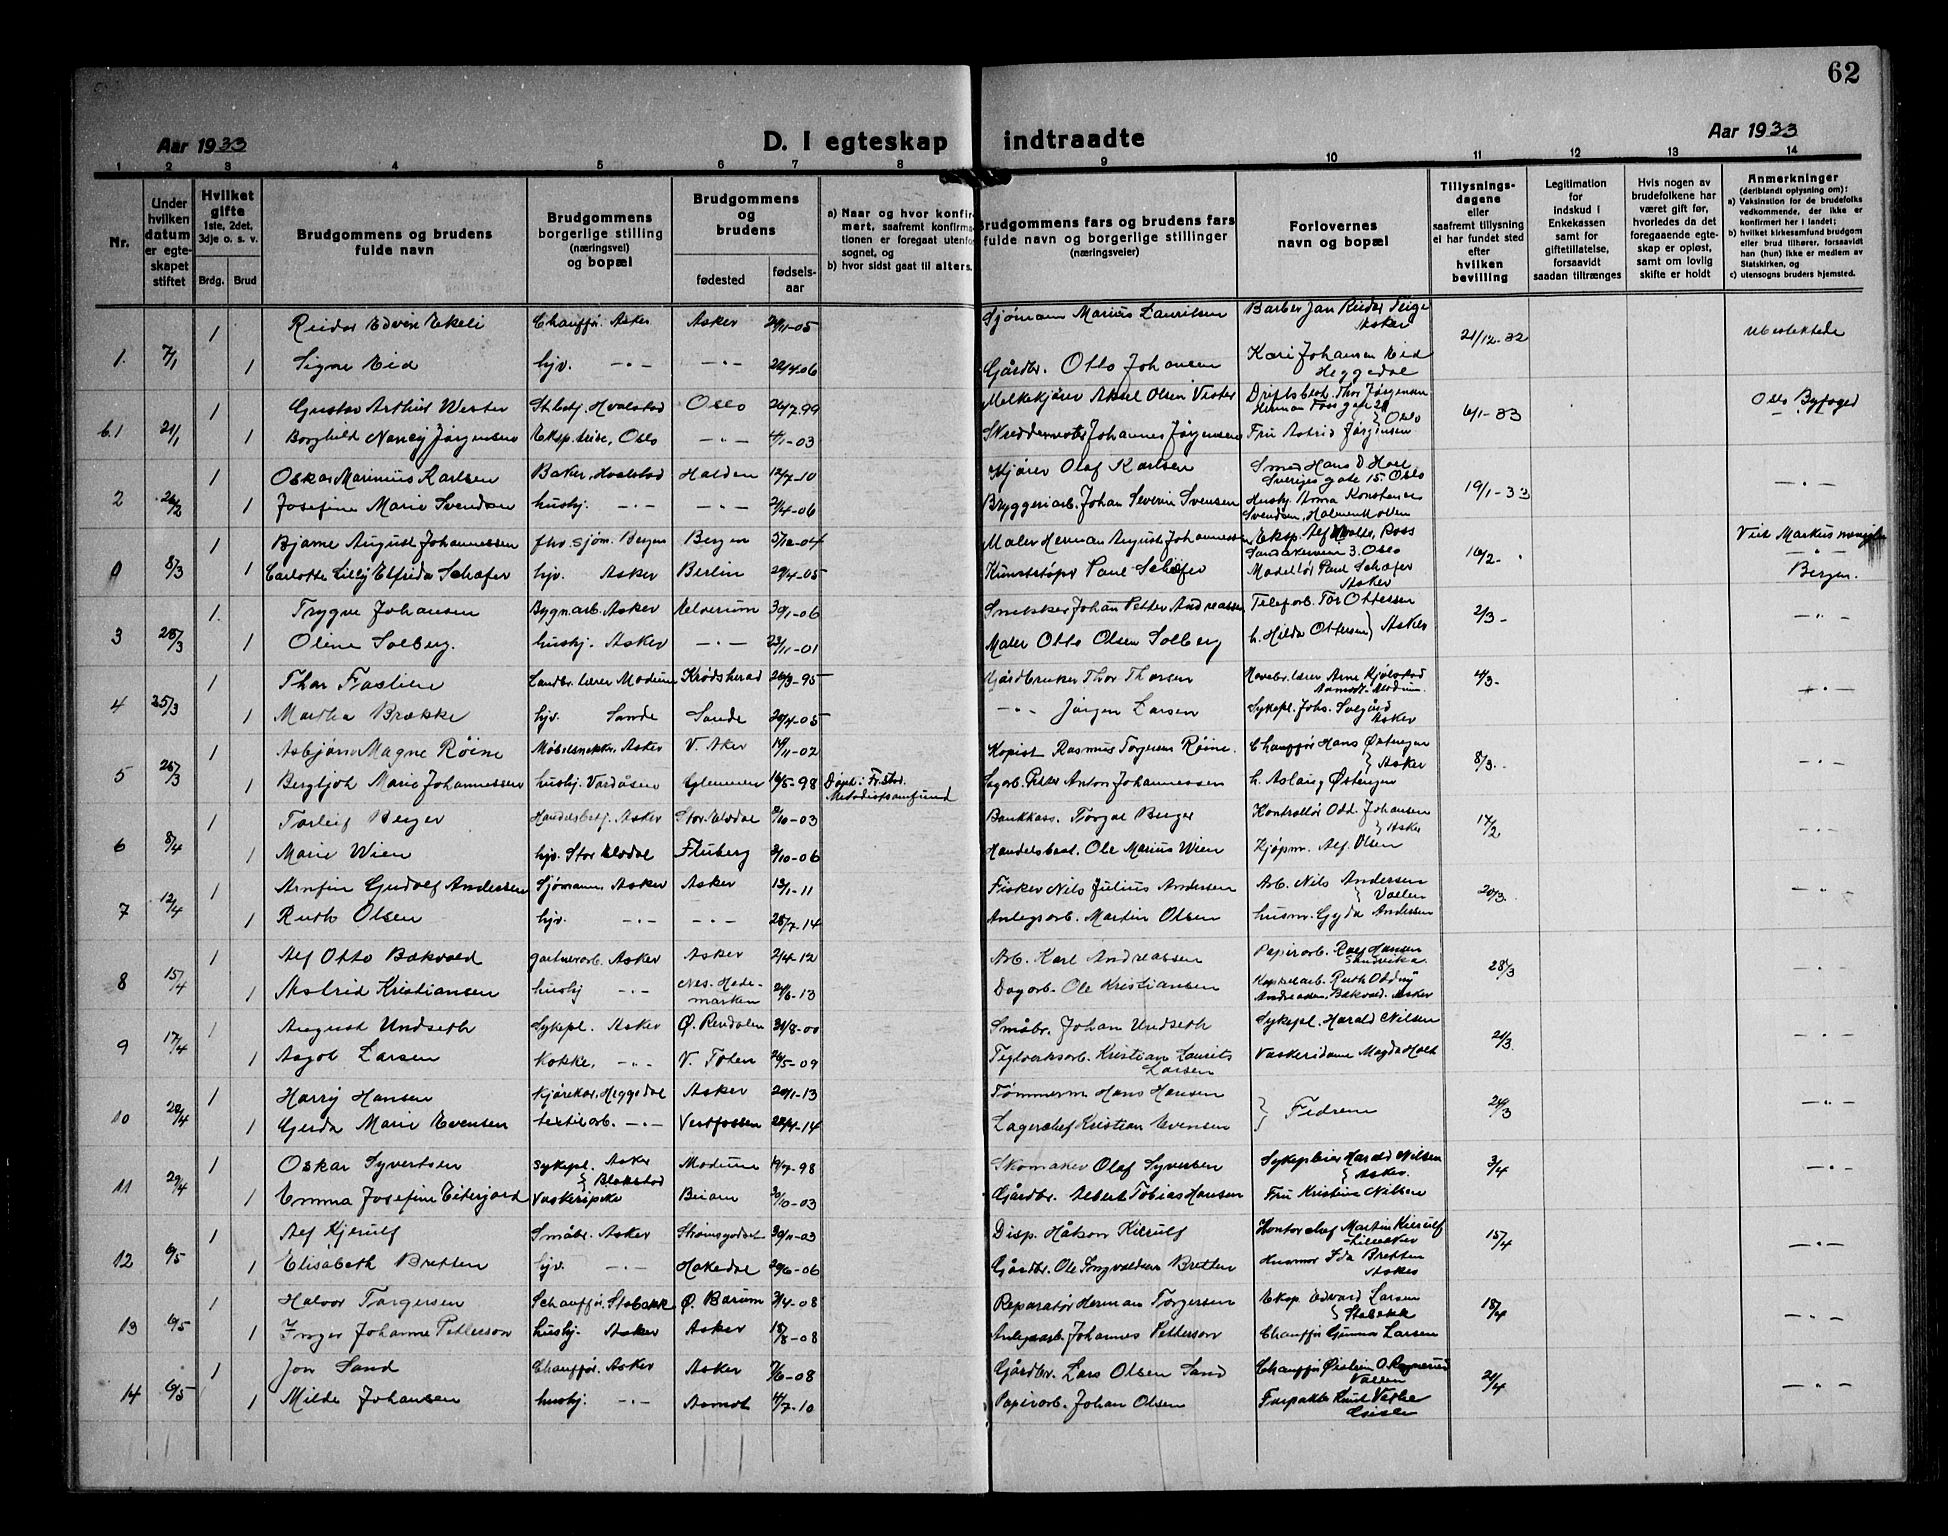 62
Aar 1933
D. I egteskap indtraadte
Aar 1933
1 2 3 4 5 6 7 8 9 10 11 12 13 14
Nr.
Under hvilken datum er egte- skapet stiftet
Hvilket gifte 1ste, 2det, 3dje o. s. v.
Brdg. Brud
Brudgommens og brudens fulde navn
Brudgommens borgerlige stilling (næringsvei) og bopæl
Brudgommens og brudens
fødested
fødsels- aar
a) Naar og hvor konfir- mert, saafremt konfirma- tionen er foregaat utenfor sognet, og
b) hvor sidst gaat til alters.
Brudgommens fars og brudens fars fulde navn og borgerlige stillinger (næringsveier)
Forlovernes navn og bopæl
Tillysnings- dagene eller saafremt tillysning ei har fundet sted efter hvilken bevilling
Legitimation for indskud i Enkekassen samt for giftetillatelse, forsaavidt saadan tiltrænges
Hvis nogen av brudefolkene har været gift før, hvorledes da det foregaaende egte- skap er opløst, samt om lovlig skifte er holdt
Anmerkninger (deriblandt oplysning om):
a) Vaksination for de brudefolks vedkommende, der ikke er konfirmert her i landet;
b) hvilket kirkesamfund brudgom eller brud tilhører, forsaavidt han (hun) ikke er medlem av Statskirken, og
c) utensogns bruders hjemsted.
1. 7/1 1 Reidar Edvin Ekeli Chauffør. Asker Asker 29/11-05 Sjømann Marius Lauritsen Barber Jan Reidar Teige Asker 21/12-32 Ubeslektede
1 Signe Eid hjv. -"- -"- 22/4-06 Gårdbr. Otto Johansen Kari Johansen Eid Heggedal
b.1 21/1 1 Gustav Arthur Wester Hvalstad Oslo 26/7-99 Melkekjører Aksel Olsen Vester Thor Jørgensen Herman Foss gate Oslo 6/1-33 Oslo Byfoged
1 Borghild Nancy Jørgensen Oslo -"- 4/1-03 Johannes Jørgensen Fru Astrid Jørgensen
2 26/2 1 Oskar Marinius Karlsen Baker, Hvalstad Halden 12/7-10 Kjører Olaf Karlsen Smed Hans Sverigesgate 15. Oslo 19/1-33 -"-
1 Josefine Marie Svendsen hushj. -"- -"- 21/4-06 Bryggeriarb. Johan Severin Svensen Hushj. Anna Konstanse Svendsen, Holmenkollen
8/3 1 Bjarne August Johannessen fhv. sjøm. Bergen Bergen 5/12-04 Maler Herman August Johannessen Eksp. Alf Ross 3. Oslo 16/2. Viet Markus menighet
1 Carlotte Lilly Elfrida Schæfer hjv. Asker Berlin 29/4-05 Kunststopr Paul Schæfer Modellør Paul Schæfer Asker Bergen.
3 28/3 1. Trygve Johansen Bygn.arb. Asker Elverum 30/1-06 Snekker Johan Petter Andreassen Telefarb. Tor Ottessen 2/3- -"-
1 Oline Solberg. hushj. Asker -"- 23/11-01 Maler Otto Olsen Solberg h. Hilda Ottersen Asker
4 25/3 1 Thor Fraslien Landbr. lærer Modum Krødsherad 26/3-95 Gårdbruker Thor Thorsen Havebr.lærer Arne Kjølstad Modum. 4/3- -"-
1 Martha Brække hjv. Sande Sande 20/4-05 -"- Jørgen Larsen Sykepl. Johs. Solgård Asker
5 26/3 1 Asbjørn Magne Røine Møbelsnekker. Asker V. Aker 14/11-02 Kopist Rasmus Torgersen Røine. Chauffør Hans Østengen Asker 8/3. -"-
1 Bergljot Marie Johannessen hushj. Vardåsen Glemmen 16/5-98 Døpt i Fr.stad Metodistsamfund Sagarb. Petter Anton Johannessen h. Aslaug Østengen
6 8/4 1 Torleif Berger Handelsbetj. Asker Stor Elvdal 8/10-03 Bankkass. Torgal Berger Kontrollør Odd. Johansen Asker 17/2 -"-
1 Marie Wien hjv. Stor Elvdal Fluberg 3/10-06 Handelsbest. Ole Marius Wien Kjøpm. Alf Olsen
7 12/4 1 Arnfin Gudolf Andersen Sjømann, Asker Asker 13/1-11 Fisker Nils Julius Andersen Arb. Nils Andersen Vollen 20/3. -"-
1 Ruth Olsen hjv. -"- -"- 28/7-14 Anlegsarb. Martin Olsen husm. Gyda Andersen
8 15/4 1 Alf Otto Bakvold gartnerarb. Asker Asker 2/4-12 Arb. Karl Andreassen Papirarb. Rolf Hansen Sandvika 28/3 -"-
1 Astrid Kristiansen hushj -"- Nes. Hede- marken 21/6-13 Dagarb. Ole Kristiansen Ruth Oddny Andreassen, Bakvold. Asker
9 17/4 1 August Undseth Sykepl. Asker Ø. Rendalen 31/8-00 Småbr. Johan Undseth Sykepl. Harald Nilsen 21/3. -"-
1 Asgot Larsen Kokke, -"- V. Toten 26/5-09 Teglverksarb. Kristian Laurits Larsen Vaskeridame Magda Holt
10 20/4 1 Harry Hansen Kjørekar, Heggedal Asker 20/1-13 Tømmerm Hans Hansen Fedrene 24/3 -"-
1 Gerda Marie Evensen textilarb. -"- Vestfossen 22/4-14 Lagerchef Kristian Evensen
11 29/4 1 Oskar Syvertsen Sykepl. Asker Blakstad Modum 19/7-98 Skomaker Olaf Syversen Sykepleier Harald Nilsen Asker. 3/4 -"-
1 Emma Josefine Eiterjord Vaskeripike Beiarn 30/10-03 Gårdbr. Albert Tobias Hansen Fru Kristine Nilsen
12 6/5 1 Alf Kjerulf Småbr. Asker Strømsgodset 30/11-03 Disp. Håkon Kierulf Kontorchef Martin Kierulf Lilleaker 15/4 -"-
1 Elisabeth Bretten hjv. -"- Hakedal 29/6-06 Gårdbr. Ole Ingvaldsen Bretten Husmor Ida Bretten Asker
13 6/5 1 Halvor Torgersen Schauffør. Stabekk Ø. Bærum 3/4-08 Reparatør Herman Torgersen Eksp Edvard Larsen Stabekk 18/4 -"-
1 Inger Johanne Petterson hushj. Asker Asker 18/8-08 Anlegsarb. Johannes Petterson Chauffør Gunnar Larsen
14 6/5 1 Jon Sand Chauffør. Asker Asker 7/6-08 Gårdbr. Lars Olsen Sand Chauffør Øistein O. Vollen 21/4 -"-
1 Milde Johansen hushj. -"- Aamot 4/7-10 Papirarb. Johan Olsen Knut